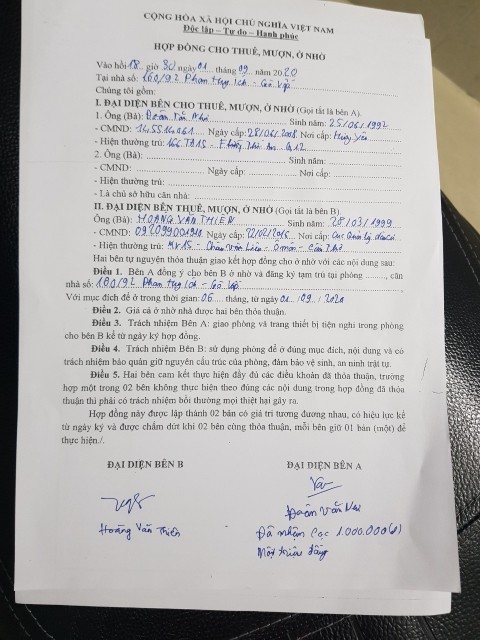 CỘNG HÒA XÃ HỘI CHỦ NGHĨA VIỆT NAM
Độc lập – Tự do – Hạnh phúc
HỢP ĐỒNG CHO THUÊ, MƯỢN, Ở NHỜ
Vào hồi 18 giờ 30 ngày 01 tháng 09 năm 2020
Tại nhà số: 160/92 Phan Huy Ích - Gò Vấp
Chúng tôi gồm:
I. ĐẠI DIỆN BÊN CHO THUÊ, MƯỢN, Ở NHỜ (Gọi tắt là bên A).
1. Ông (Bà): Đoàn Văn Sinh năm: 25/06/1992
- CMND: Ngày cấp: 28/06/2008 Nơi cấp: Hưng Yên
- Hiện thường trú: Q12
2. Ông (Bà): Sinh năm:
- CMND: Ngày cấp: Nơi cấp:
- Hiện thường trú:
- Là chủ sở hữu căn nhà:
II. ĐẠI DIỆN BÊN THUÊ, MƯỢN, Ở NHỜ (Gọi tắt là bên B).
Ông (Bà): HOÀNG VĂN THIÊN Sinh năm: 28/03/1999
- CMND: Ngày cấp: 22/02/2016 Nơi cấp:
- Hiện thường trú: Châu Văn Liêm - Ô môn - Cần Thơ
Hai bên tự nguyện thỏa thuận giao kết hợp đồng cho ở nhờ với các nội dung sau:
Điều 1. Bên A đồng ý cho bên B ở nhờ và đăng ký tạm trú tại phòng ........, căn
nhà số: 160/92 Phan Huy Ích - Gò Vấp
Với mục đích để ở trong thời gian: 06 tháng, từ ngày 01 / 09 / 2020
Điều 2. Giá cả ở nhờ nhà được hai bên thỏa thuận.
Điều 3. Trách nhiệm Bên A: giao phòng và trang thiết bị tiện nghi trong phòng
cho bên B kể từ ngày ký hợp đồng.
Điều 4. Trách nhiệm Bên B: sử dụng phòng để ở đúng mục đích, nội dung và có
trách nhiệm bảo quản giữ nguyên cấu trúc của phòng, đảm bảo vệ sinh, an ninh trật tự.
Điều 5. Hai bên cam kết thực hiện đầy đủ các điều khoản đã thỏa thuận, trường
hợp một trong 02 bên không thực hiện theo đúng các nội dung trong hợp đồng đã thỏa
thuận thì phải có trách nhiệm bồi thường mọi thiệt hại gây ra.
Hợp đồng này được lập thành 02 bản có giá trị tương đương nhau, có hiệu lực kể
từ ngày ký và được chấm dứt khi 02 bên cùng thỏa thuận, mỗi bên giữ 01 bản (một) để
thực hiện./.
ĐẠI DIỆN BÊN B ĐẠI DIỆN BÊN A
Đoàn Văn
Hoàng Văn Thiên Đã nhận cọc 1.000.000(đ)
Một triệu đồng